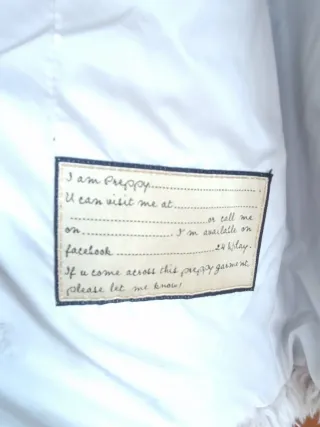 I am Preppy.............................. .
U can visit me at........................
......................................or call me
on................. I'm available on
facebook ............................24 h/day.
If u come across this preppy garment,
please let me know!